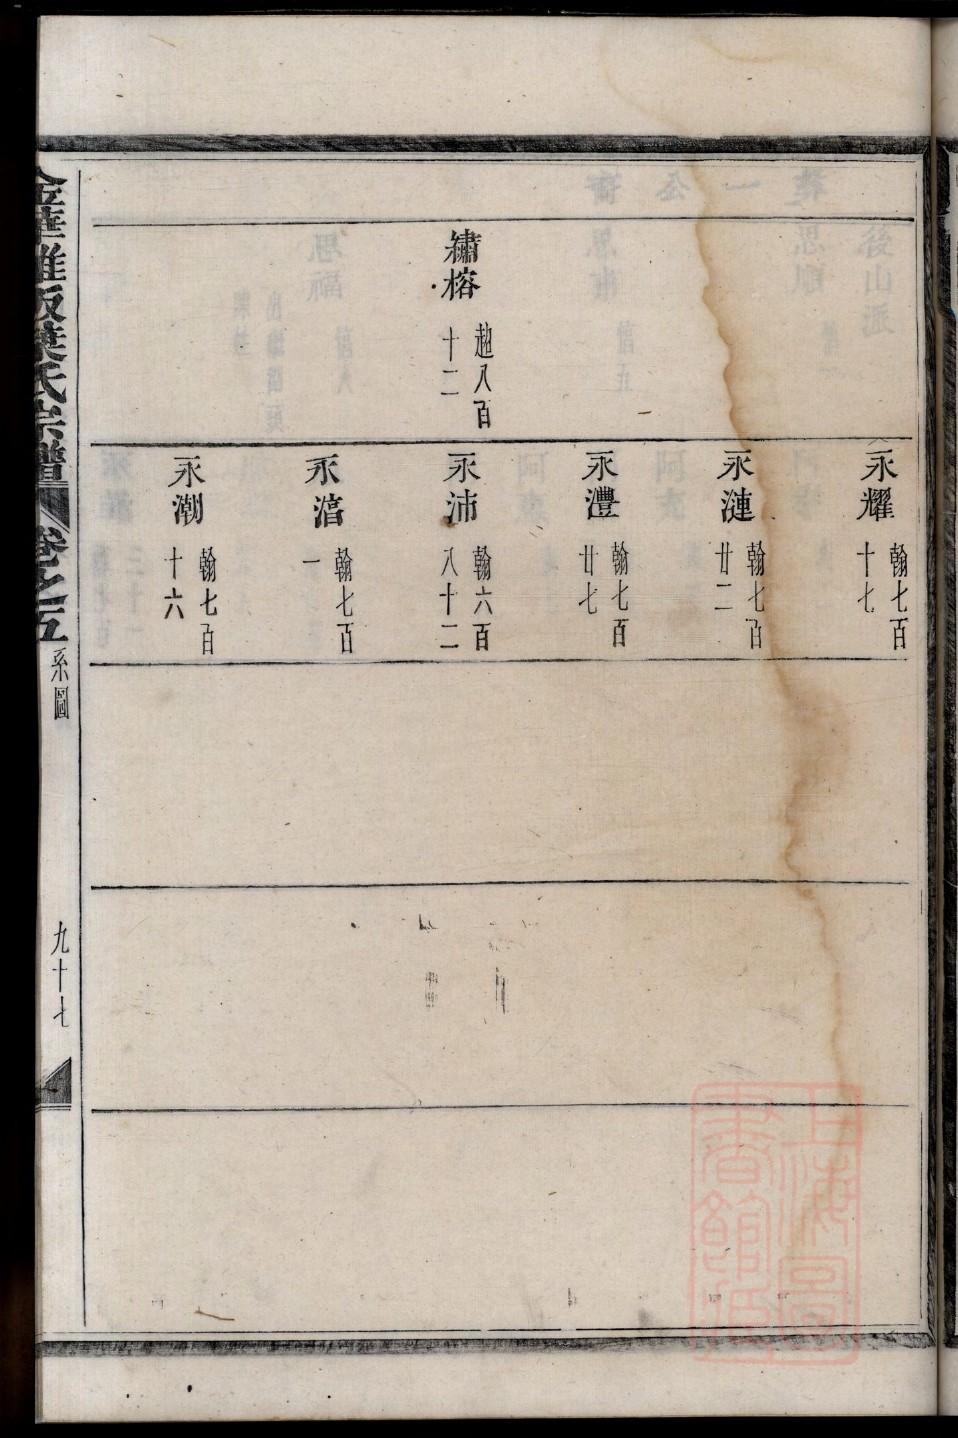 繡榕 趙八百十二
永耀 翰七百十七
永漣 翰七百廿二
永灃 翰七百廿七
永沛 翰六百八十二
永涫 翰七百一
永潮 翰七百十六
葉氏宗譜 卷之五 系圖 九十七
上海圖書館藏